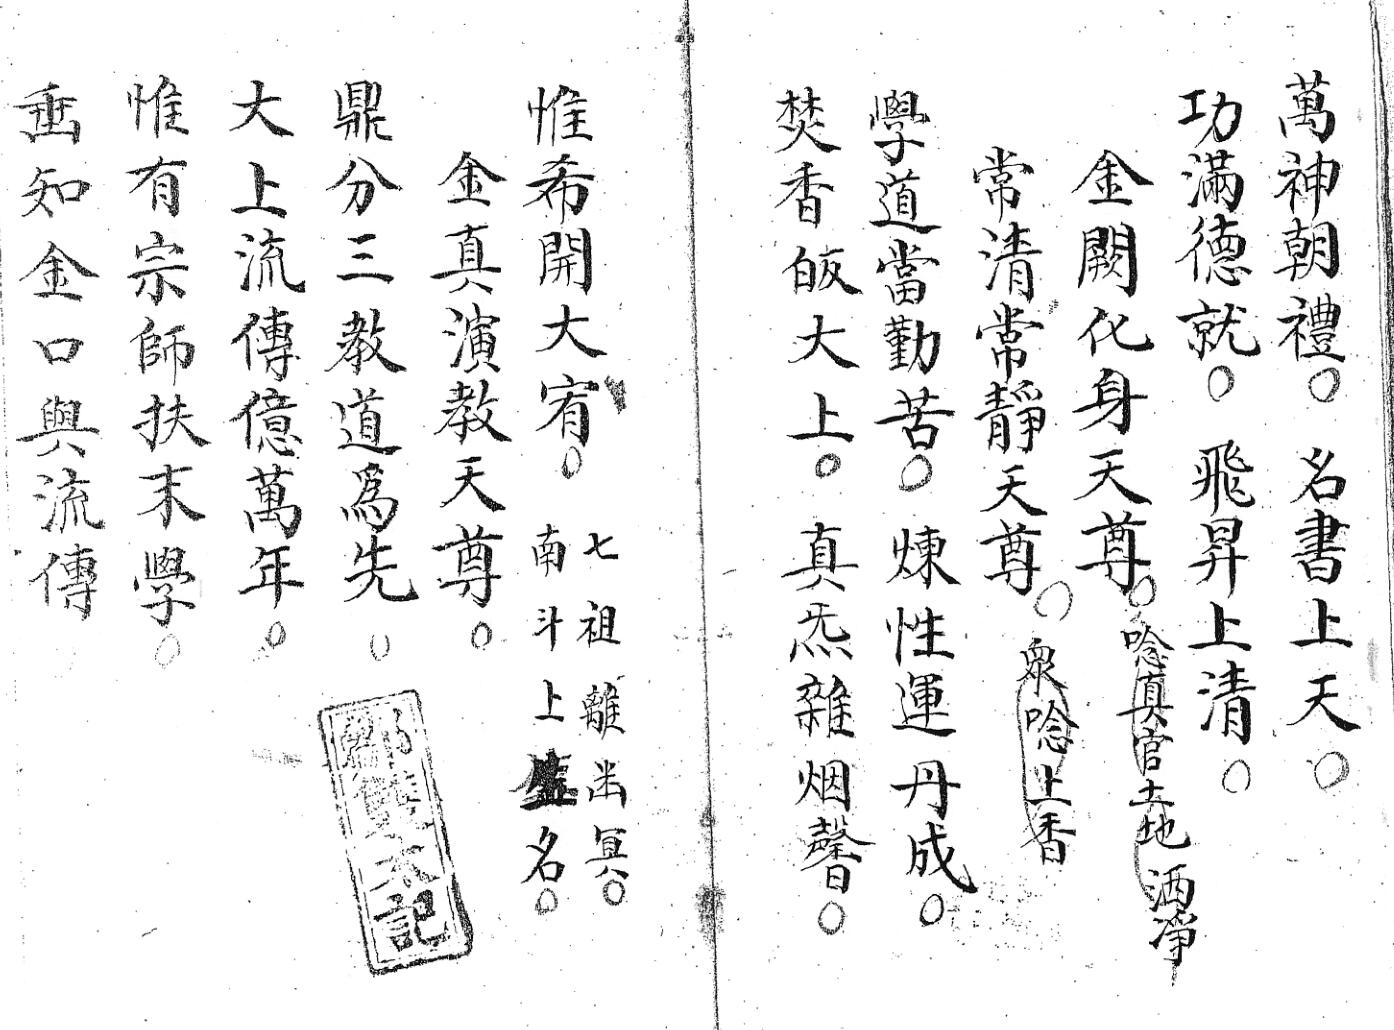 萬神朝禮○名書上天○
功滿德就○飛昇上清○
金闕化身天尊○唸真官土地洒淨
常清常靜天尊○衆唸上香
學道當勤苦○煉性運丹成○
焚香皈大上○真炁雜烟馨○
惟希開大宥○七祖離幽冥○
南斗上名○
金真演教天尊○
鼎分三教道為先○
大上流傳億萬年○
惟有宗師扶末學○
知金口與流傳
記